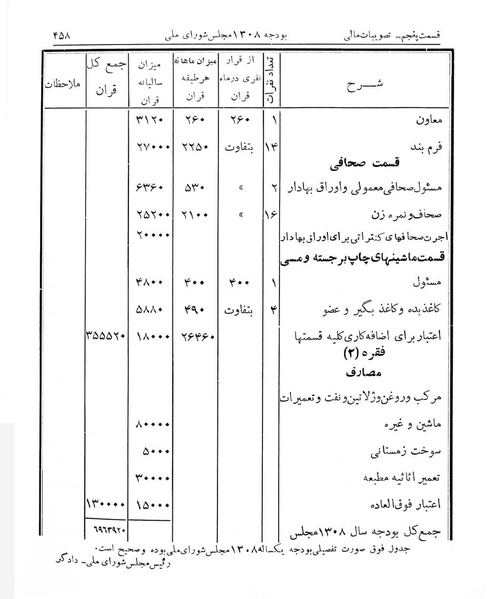 قسمت پنجم ـ تصویبات مالی بودجه ۱۳۰۸ مجلس شورای ملی ۴۵۸
شـــرح تعداد نفرات از قرار نفری درماه قران میزان ماهانه هرطبقه قران میزان سالیانه قران جمع کل قران ملاحظات
معاون ۱ ۲۶۰ ۲۶۰ ۳۱۲۰
فرم بند ۱۴ بتفاوت ۲۲۵۰ ۲۷۰۰۰
قسمت صحافی
مسئول صحافی معمولی و اوراق بهادار ۲ » ۵۳۰ ۶۳۶۰
صحاف و نمره زن ۱۶ » ۲۱۰۰ ۲۵۲۰۰
اجرت صحافهای کنتراتی برای اوراق بهادار ۲۰۰۰۰
قسمت ماشینهای چاپ برجسته و مسی
مسئول ۱ ۴۰۰ ۴۰۰ ۴۸۰۰
کاغذ بده و کاغذ بگیر و عضو ۴ بتفاوت ۴۹۰ ۵۸۸۰
اعتبار برای اضافه کاری کلیه قسمتها ۲۶۴۶۰ ۱۸۰۰۰ ۳۵۵۵۲۰
فقره (۲)
مصارف
مرکب و روغن و ژلاتین و نفت و تعمیرات
ماشین و غیره ۸۰۰۰۰
سوخت زمستانی ۵۰۰۰
تعمیر اثاثیه مطبعه ۳۰۰۰۰
اعتبار فوق العاده ۱۵۰۰۰ ۱۳۰۰۰۰
جمع کل بودجه سال ۱۳۰۸ مجلس ۶۹۶۳۹۲۰
جدول فوق صورت تفصیلی بودجه یکساله ۱۳۰۸ مجلس شورای ملی بوده و صحیح است.
رئیس مجلس شورای ملی ـ دادگر